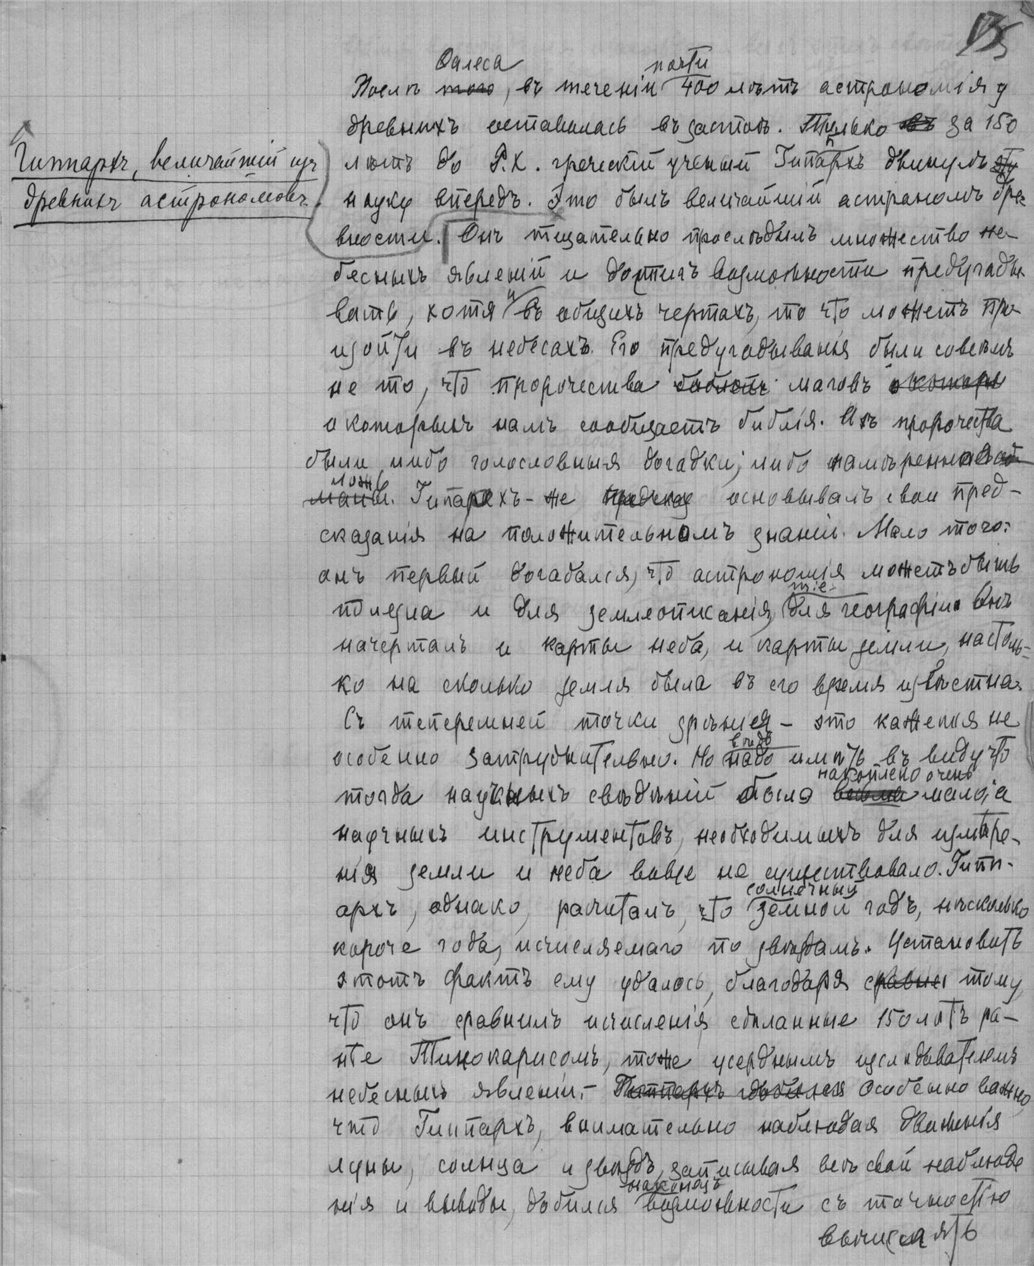 13
Фалеса почти
Послѣ того, въ теченіи 400 лѣтъ астрономія у
древнихъ оставалась въ застоѣ. Только въ за 150
Гиппархъ, величайшій изъ
древнихъ астрономовъ.
лѣтъ до Р.Х. греческій ученый Гипархъ двинулъ эту
науку впередъ. Это былъ величайшій астрономъ дре-
вности. Онъ тщательно прослѣдилъ множество не-
бесныхъ явленій и достигъ возможности предугады-
вать, хотя и въ общихъ чертахъ, то что можетъ про-
изойти въ небесахъ. Его предугадыванья были совсѣмъ
не то, что пророчества маговъ о которы
о которыхъ намъ сообщаетъ библія. Ихъ пророчества
были либо голословныя догадки, либо намѣренно
ложь
Гипархъ-же предсказ основывалъ свои пред-
сказанія на положительномъ знаніи. Мало того:
онъ первый догадался, что астрономія можетъ быть
т.е.
полезна и для землеописанія, для географіи. Онъ
начерталъ и карты неба, и карты земли, настоль-
ко на сколько земля была въ его время извѣстна.
Съ теперешней точки зрѣнія - это кажется не
особенно затруднительно. Но надо имѣть въ виду что
накоплено очень
тогда научныхъ свѣдѣній было весьма мало, а
научныхъ инструментовъ, необходимыхъ для измѣре-
нія земли и неба вовсе не существовало. Гипп-
солнечный
архъ, однако, расчиталъ, что земной годъ, нѣсколько
короче года, исчисляемаго по звѣздамъ. Установить
этотъ фактъ ему удалось, благодаря сравне тому,
что онъ сравнилъ исчисленія сдѣланные 150 лѣтъ ра-
нѣе Тинокарисомъ, тоже усерднымъ изслѣдователемъ
небесныхъ явленій. - Гиппархъ добился Особенно важно,
что Гиппархъ, внимательно наблюдая движенія
луны, солнца и звѣздъ, записывая всѣ свои наблюде-
наконецъ
нія и выводы, добился возможности съ точностію
вычислять